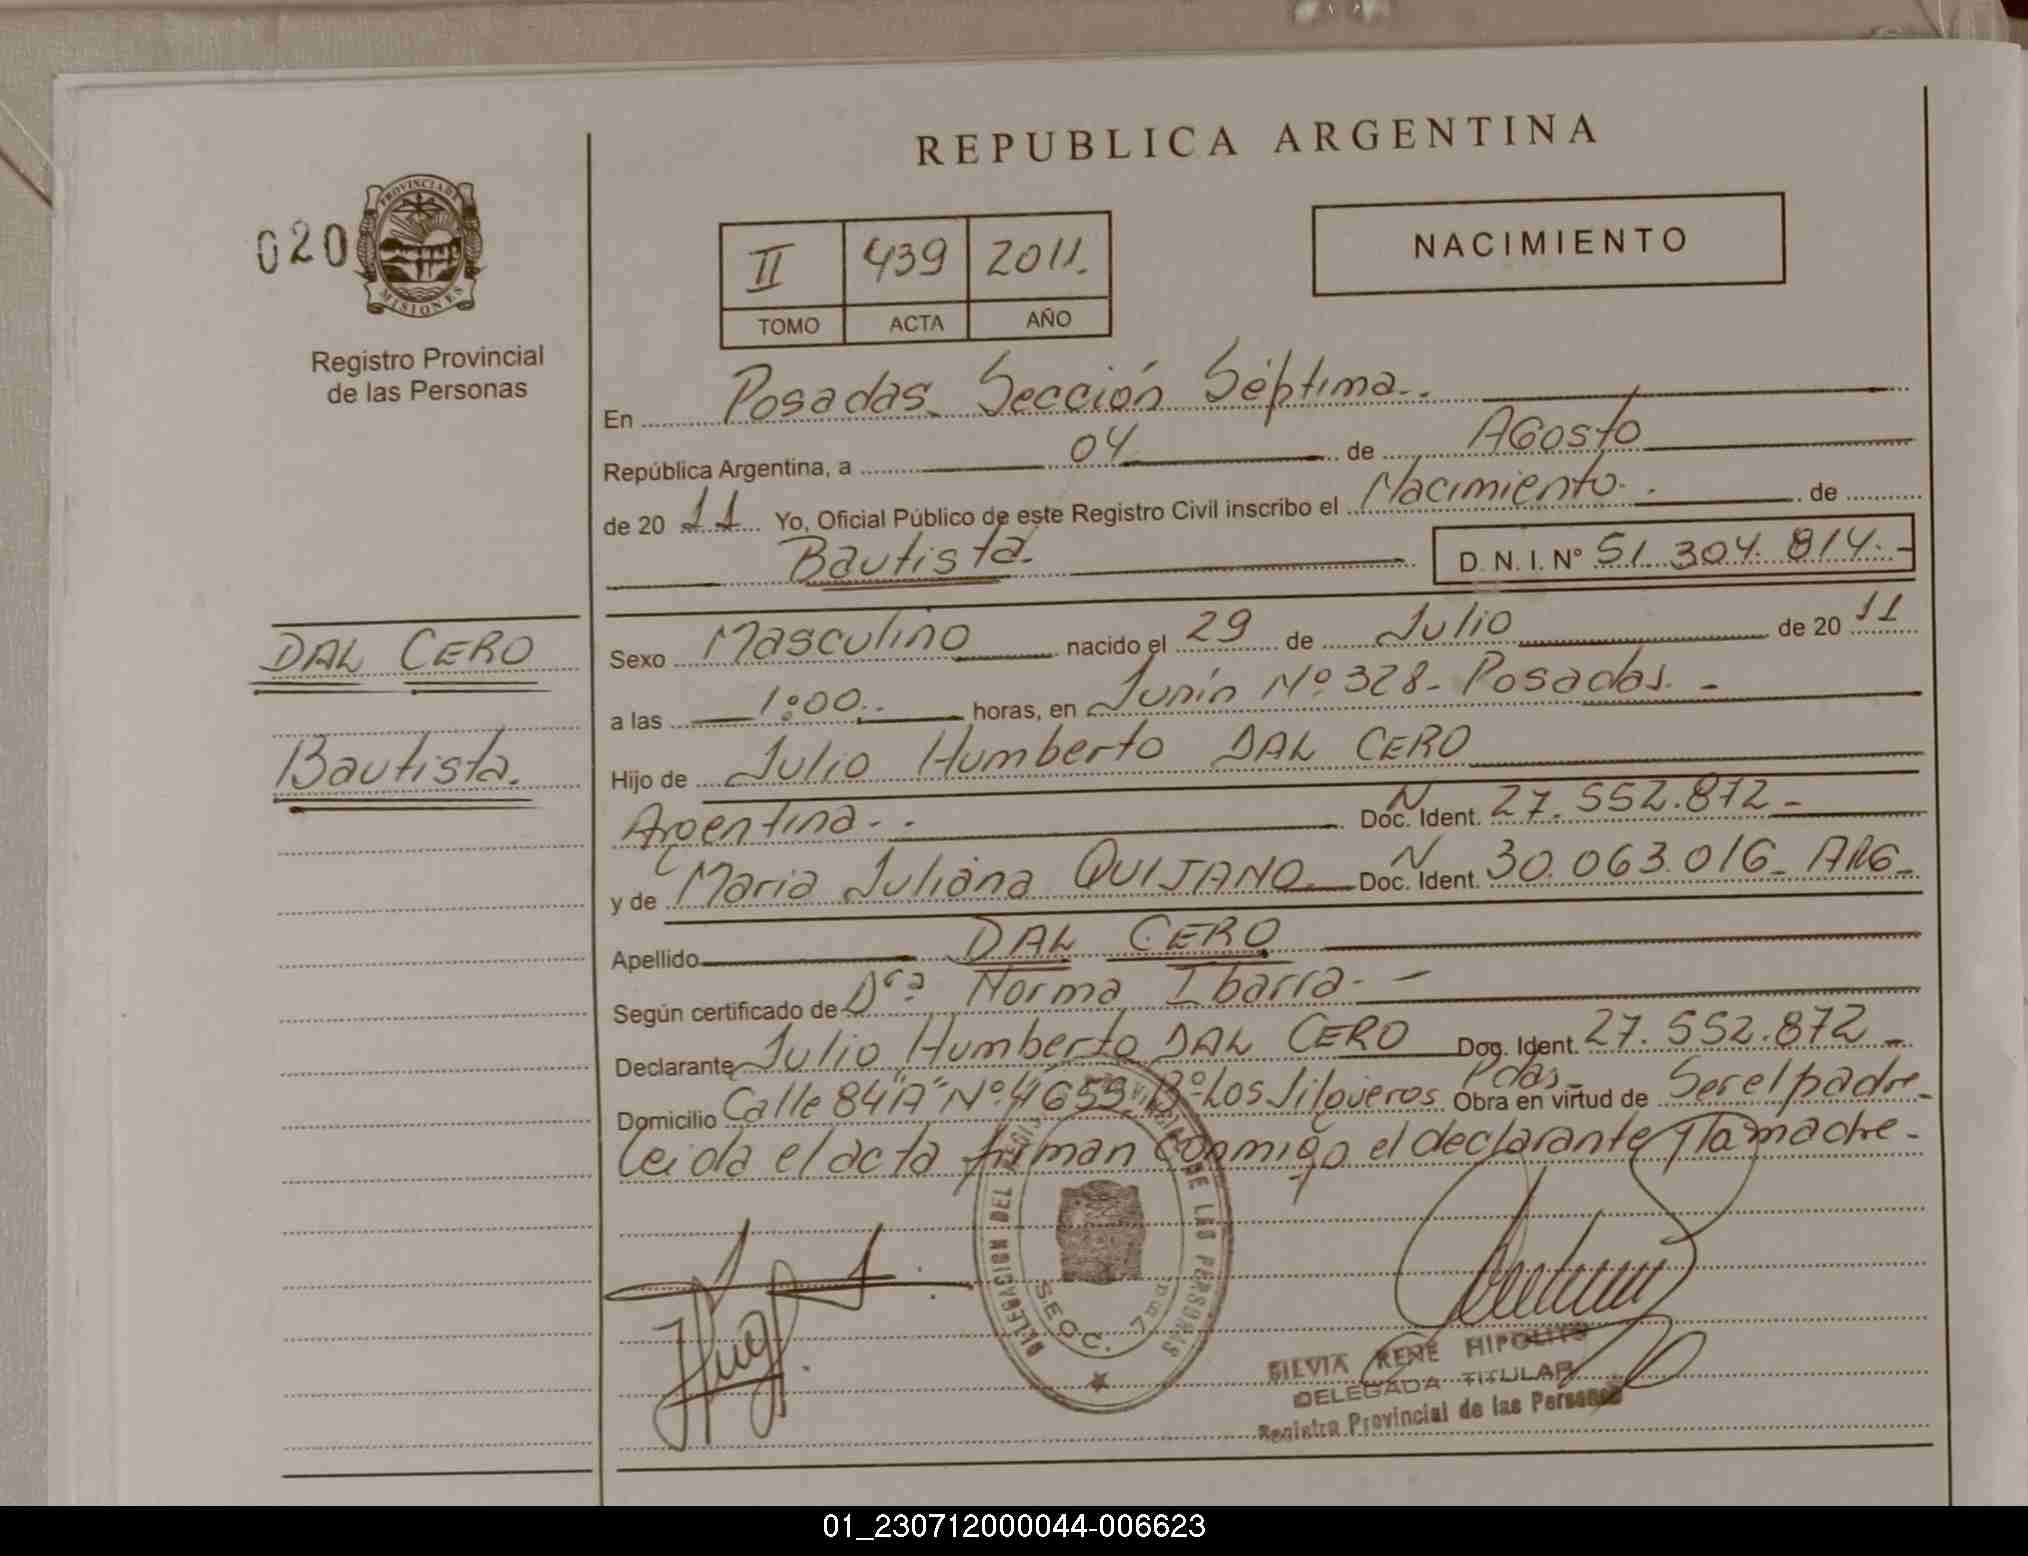 REPUBLICA ARGENTINA
020
PROVINCIA DE
MISIONES
Registro Provincial
de las Personas
II 439 2011.
TOMO ACTA AÑO
NACIMIENTO
En Posadas Sección Séptima..
República Argentina, a 04 de Agosto
de 20 11 Yo, Oficial Público de este Registro Civil inscribo el Nacimiento. de
Bautista. D. N. I. Nº 51.304.814.-
DAL CERO
Bautista.
Sexo Masculino nacido el 29 de Julio de 20 11
a las 1:00.. horas, en Junín Nº 328- Posadas.-
Hijo de Julio Humberto DAL CERO
Argentina.. Doc. N Ident. 27.552.872-
y de Maria Juliana QUIJANO Doc. N Ident. 30.063.016- ARG-
Apellido DAL CERO
Según certificado de Dra. Norma Ibarra.-
Declarante Julio Humberto DAL CERO Doc. Ident. 27.552.872-
Domicilio Calle 84"A" Nº 4659 Bº Los Jilgueros Pdas- Obra en virtud de Ser el padre-
Leida el acta firman conmigo el declarante y la madre-
DELEGACION DEL DE LAS PERSONAS
SECC. 7ma
SILVIA RENÉ HIPOLITO
DELEGADA TITULAR
Registro Provincial de las Personas
01_230712000044-006623